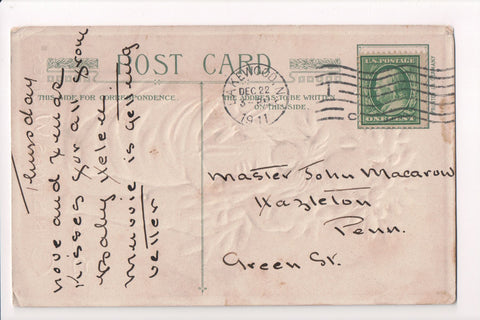 POST CARD
THIS SIDE FOR CORRESPONDENCE.
THE ADDRESS TO BE WRITTEN
ON THIS SIDE.
LAKEWOOD, N
DEC 22
1911
U.S. POSTAGE
ONE CENT
Thursday
love and Xmas
Kisses for all from
Baby Helen
is getting
better
Master John Macarow
Hazleton
Penn.
Green St.